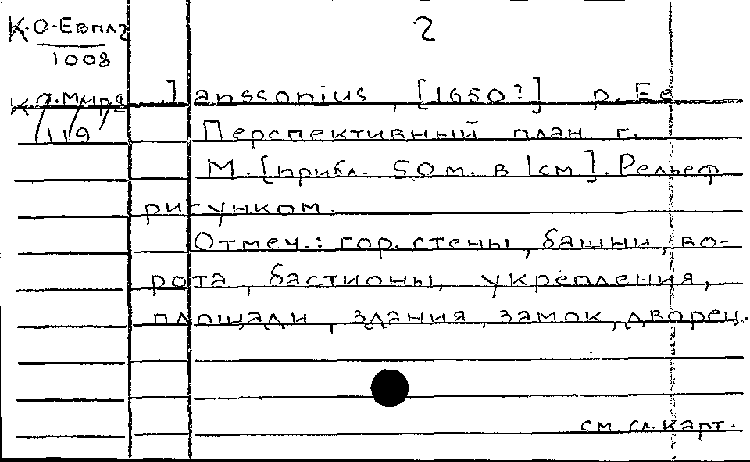 К.О-Евпл2
1008
2
К.О.Мира
119
Janssonius, [1650?] р. Ее
Перспективный план г.
М. [прибл. 50 м. в 1 см]. Рельеф
рисунком.
Отмеч.: гор. стены, башни, во-
рота, бастионы, укрепления,
площади, здания, замок, дворец.
см. сл. карт.